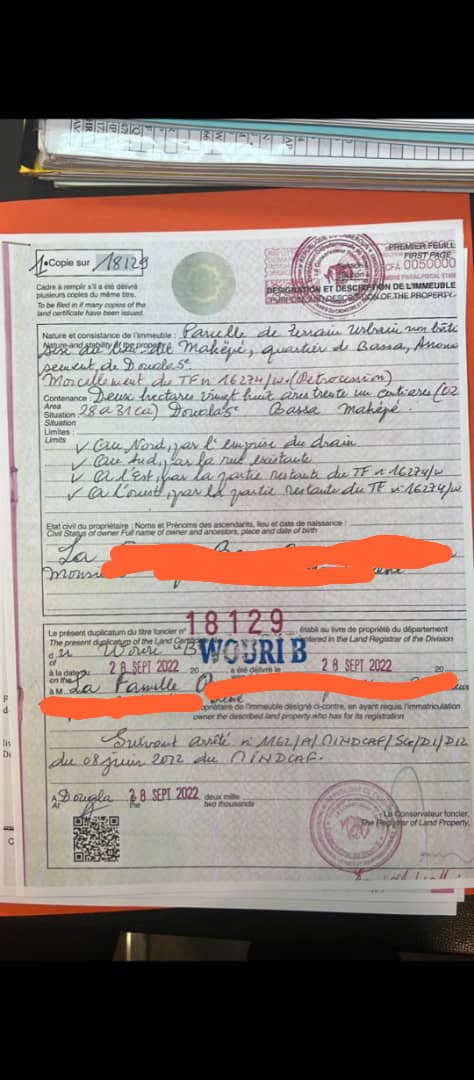 1•Copie sur 18129
PREMIER FEUILLET
FIRST PAGE
CFA 0050000
Cadre à remplir s'il a été délivré
plusieurs copies du même titre.
To be filed in if many copies of the
land certificate have been issued.
DÉSIGNATION ET DESCRIPTION DE L'IMMEUBLE
PURPOSE AND DESCRIPTION OF THE PROPERTY
Nature et consistance de l'immeuble : Parcelle de terrain urbain non bâtie
Nature and of the property
sise au lieu dit Mahépé, quartier de Bassa,
de Douala 5e
Morcellement du TF n° 16274/w (Retrocession)
Contenance : Deux hectares vingt huit ares trente un centiares (02
Area
Situation 28a 31ca) Douala 5e Bassa Mahépé.
Situation
Limites :
Limits
✓ Au Nord, par l'emprise du drain
✓ Au Sud, par la rue existante
✓ A l'Est, par la partie restante du TF n° 16274/w
✓ A l'ouest, par la partie restante du TF n° 16274/w
Etat civil du propriétaire : Noms et Prénoms des ascendants, lieu et date de naissance :
Civil Status of owner Full name of owner and ancestors, place and date of birth
La
Le présent duplicatum du titre foncier n° 18129, établi au livre de propriété du département
The present duplicatum of the Land entered in the Land Register of the Division
du Wouri "B" WOURI B
of
à la date du 28 SEPT 2022 20 a été délivré le 28 SEPT 2022 20
on the
à M. La Famille
propriétaire de l'immeuble désigné ci-contre, en ayant requis l'immatriculation
owner the described land property who has for its registration
Suivant arrêté n° 1162/A/MINDCAF/SG/D1/D12
du 08 juin 2012 du MINDCAF.
A Douala, 28 SEPT 2022 deux mille
At the two thousands
Le Conservateur foncier,
The Registrar of Land Property,